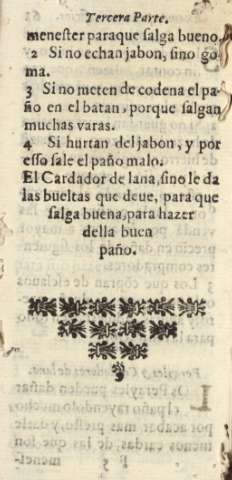 Tercera Parte.
menester paraque salga bueno.
2 Si no echan jabon, sino go-
ma.
3 Si no meten de codena el pa-
ño en el batan, porque salgan
muchas varas.
4 Si hurtan del jabon, y por
esso sale el paño malo.
El Cardador de lana, sino le da
las bueltas que deue, para que
salga buena, para hazer
della buen
paño.